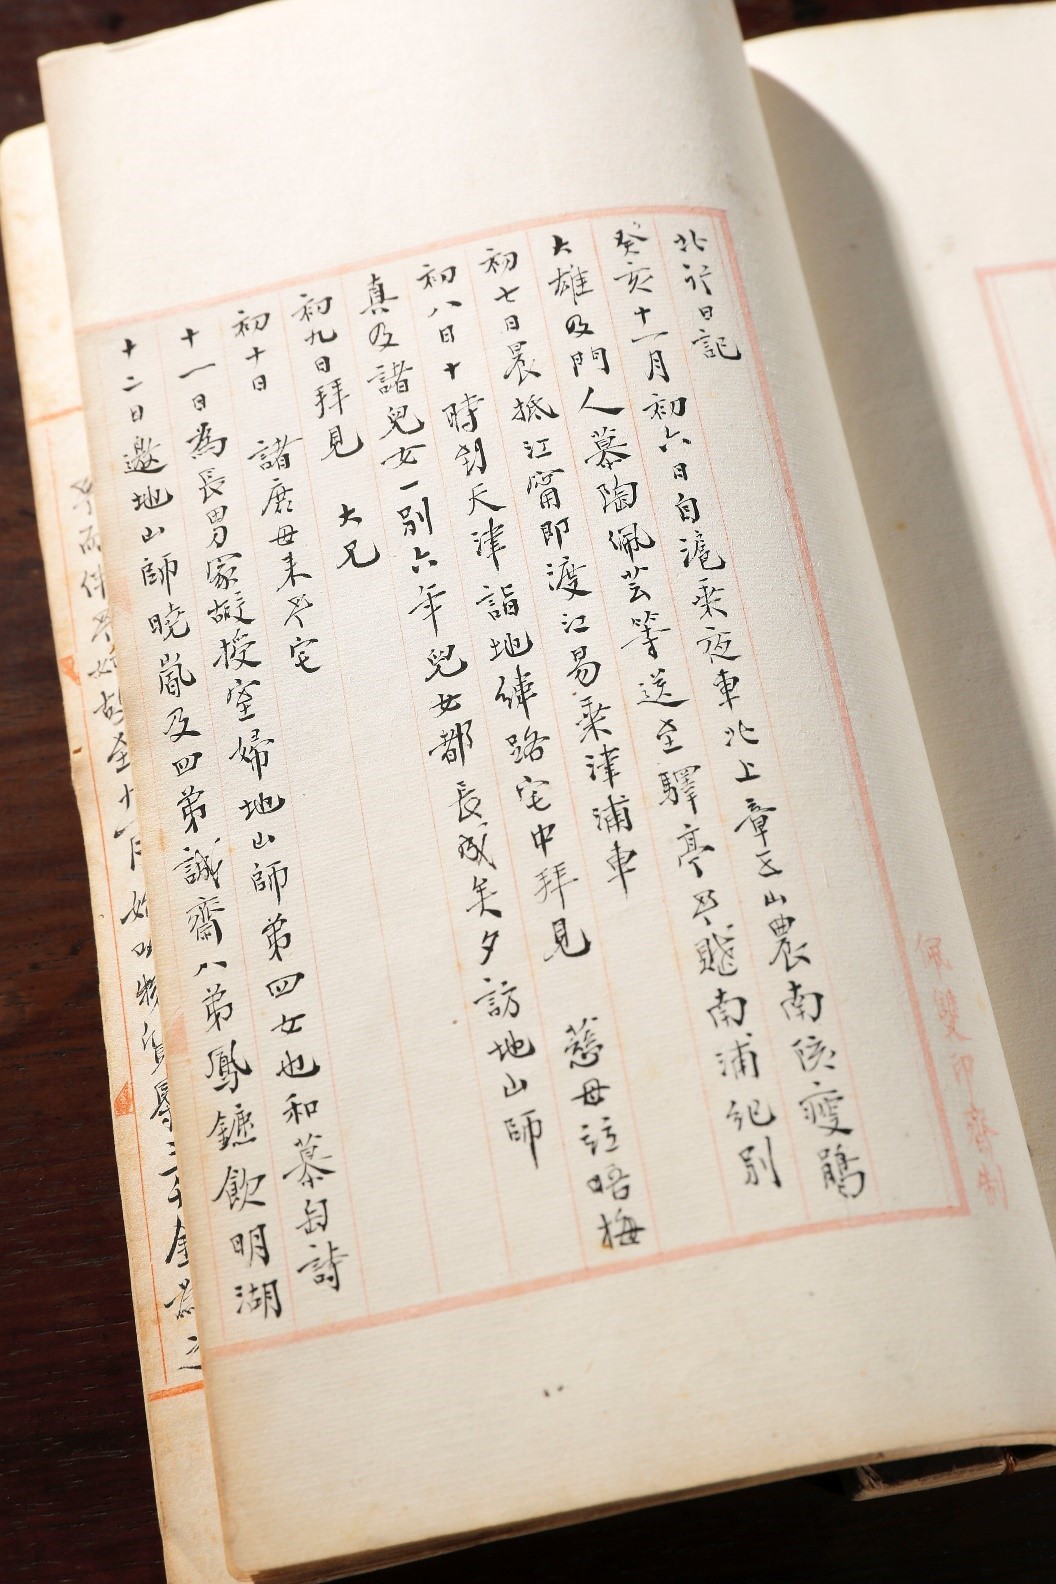 北行日記
癸亥十一月初六日自滬乘夜車北上章玉山農南陔瘦鵑
大雄及門人慕陶佩芸等送至驛亭異賤南浦紀別
初七日晨抵江甯即渡江易乘津浦車
初八日十時到天津詣地緯路宅中拜見 慈母竝晤梅
真及諸兒女一別六年兒女都長成矣夕訪地山師
初九日拜見 大兄
初十日 諸庶母来異宅
十一日為長男家嘏授室婦地山師弟四女也和慕自詩
十二日邀地山師曉嵐及四弟誠齋八弟鳳鑣飲明湖
佩雙印齋制